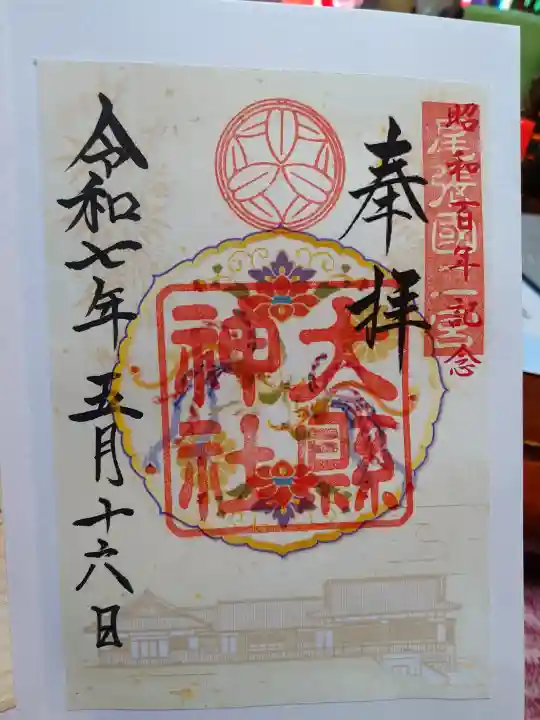 昭和百年記念
尾張國二宮
奉拝
大縣
神社
令和七年五月十六日